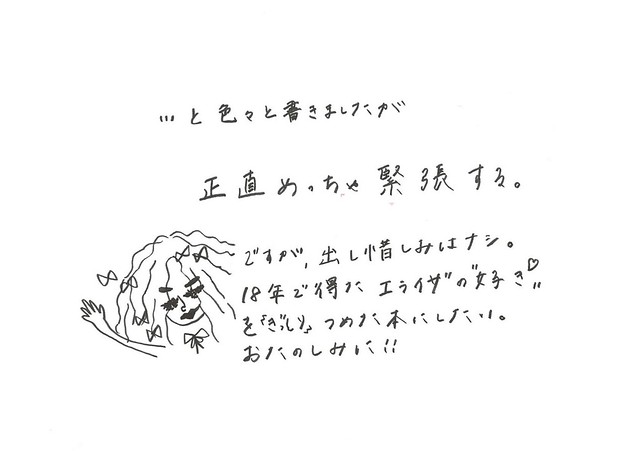 …と色々と書きましたが
正直めっちゃ緊張する。
ですが、出し惜しみはナシ。
18年で得た エライザの"好き♡"
を「ぎっしり」つめた本にしたい。
おたのしみに!!